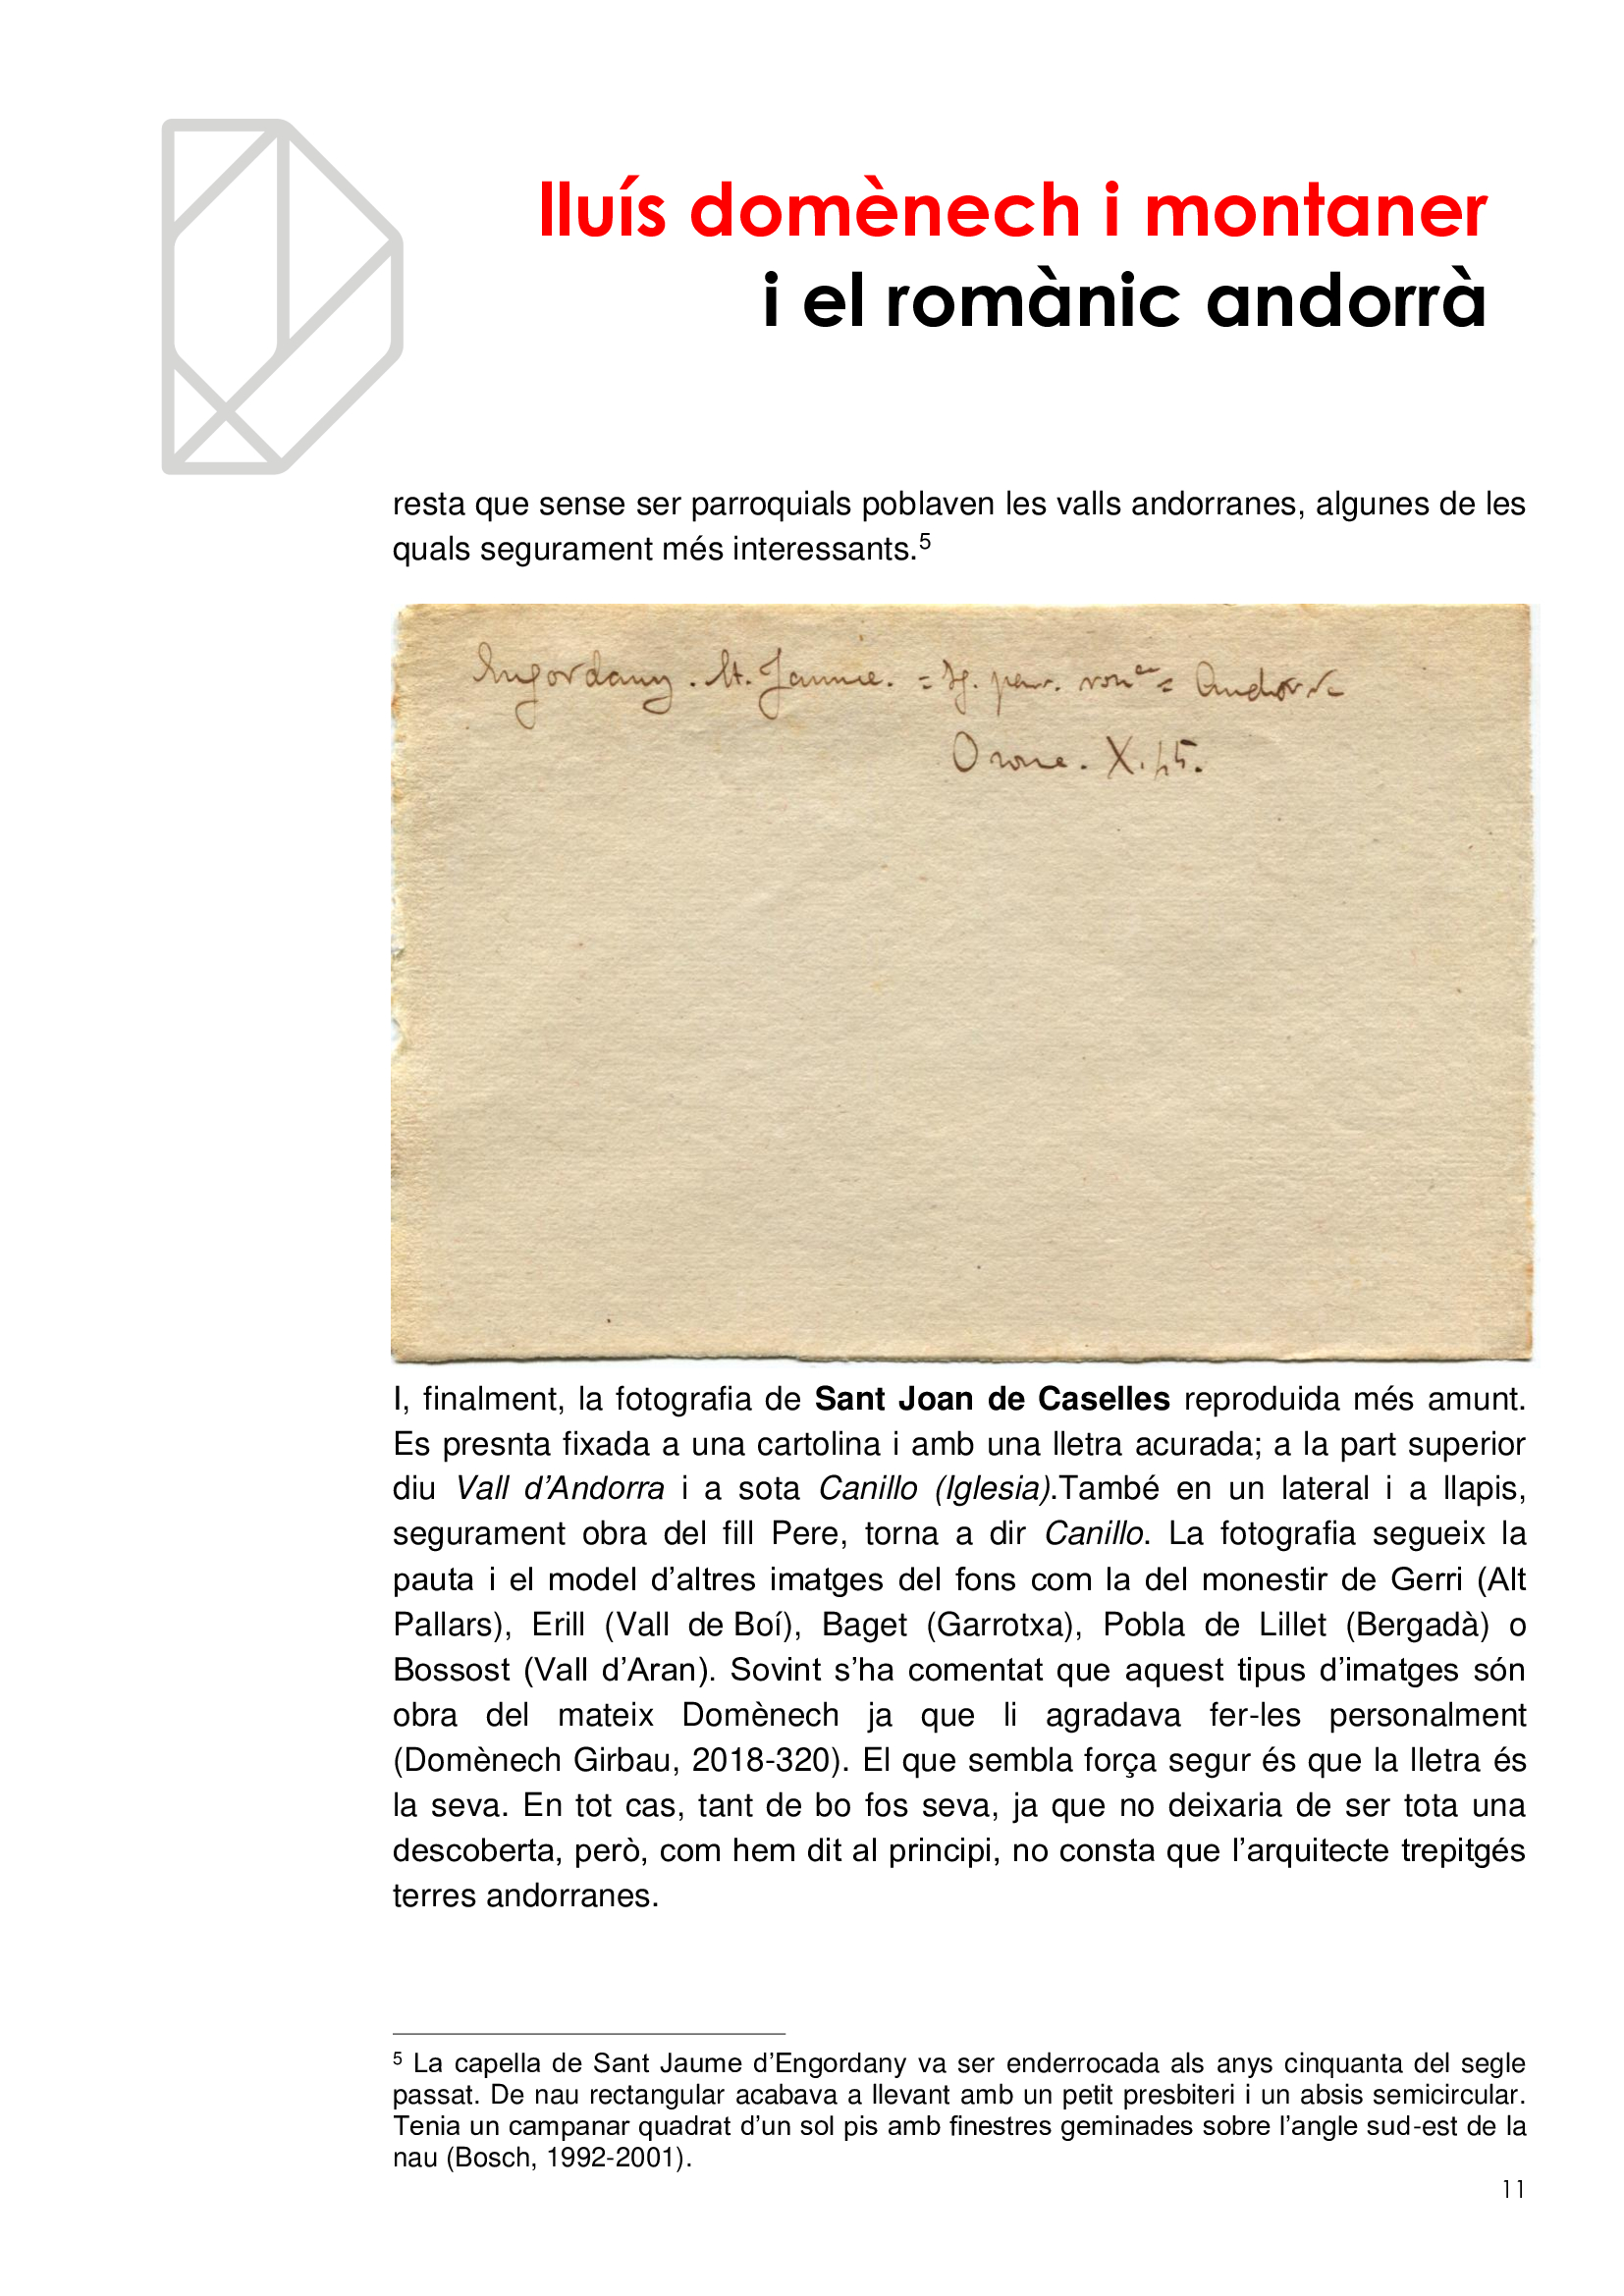 lluís domènech i montaner
i el romànic andorrà
resta que sense ser parroquials poblaven les valls andorranes, algunes de les
quals segurament més interessants.5
Engordany. St. Jaume. = Igl. parr. ron.ca = Andorra
X. 45.
I, finalment, la fotografia de Sant Joan de Caselles reproduida més amunt.
Es presnta fixada a una cartolina i amb una lletra acurada; a la part superior
diu Vall d’Andorra i a sota Canillo (Iglesia).També en un lateral i a llapis,
segurament obra del fill Pere, torna a dir Canillo. La fotografia segueix la
pauta i el model d’altres imatges del fons com la del monestir de Gerri (Alt
Pallars), Erill (Vall de Boí), Baget (Garrotxa), Pobla de Lillet (Bergadà) o
Bossost (Vall d’Aran). Sovint s’ha comentat que aquest tipus d’imatges són
obra del mateix Domènech ja que li agradava fer-les personalment
(Domènech Girbau, 2018-320). El que sembla força segur és que la lletra és
la seva. En tot cas, tant de bo fos seva, ja que no deixaria de ser tota una
descoberta, però, com hem dit al principi, no consta que l’arquitecte trepitgés
terres andorranes.
5 La capella de Sant Jaume d’Engordany va ser enderrocada als anys cinquanta del segle
passat. De nau rectangular acabava a llevant amb un petit presbiteri i un absis semicircular.
Tenia un campanar quadrat d’un sol pis amb finestres geminades sobre l’angle sud-est de la
nau (Bosch, 1992-2001).
11